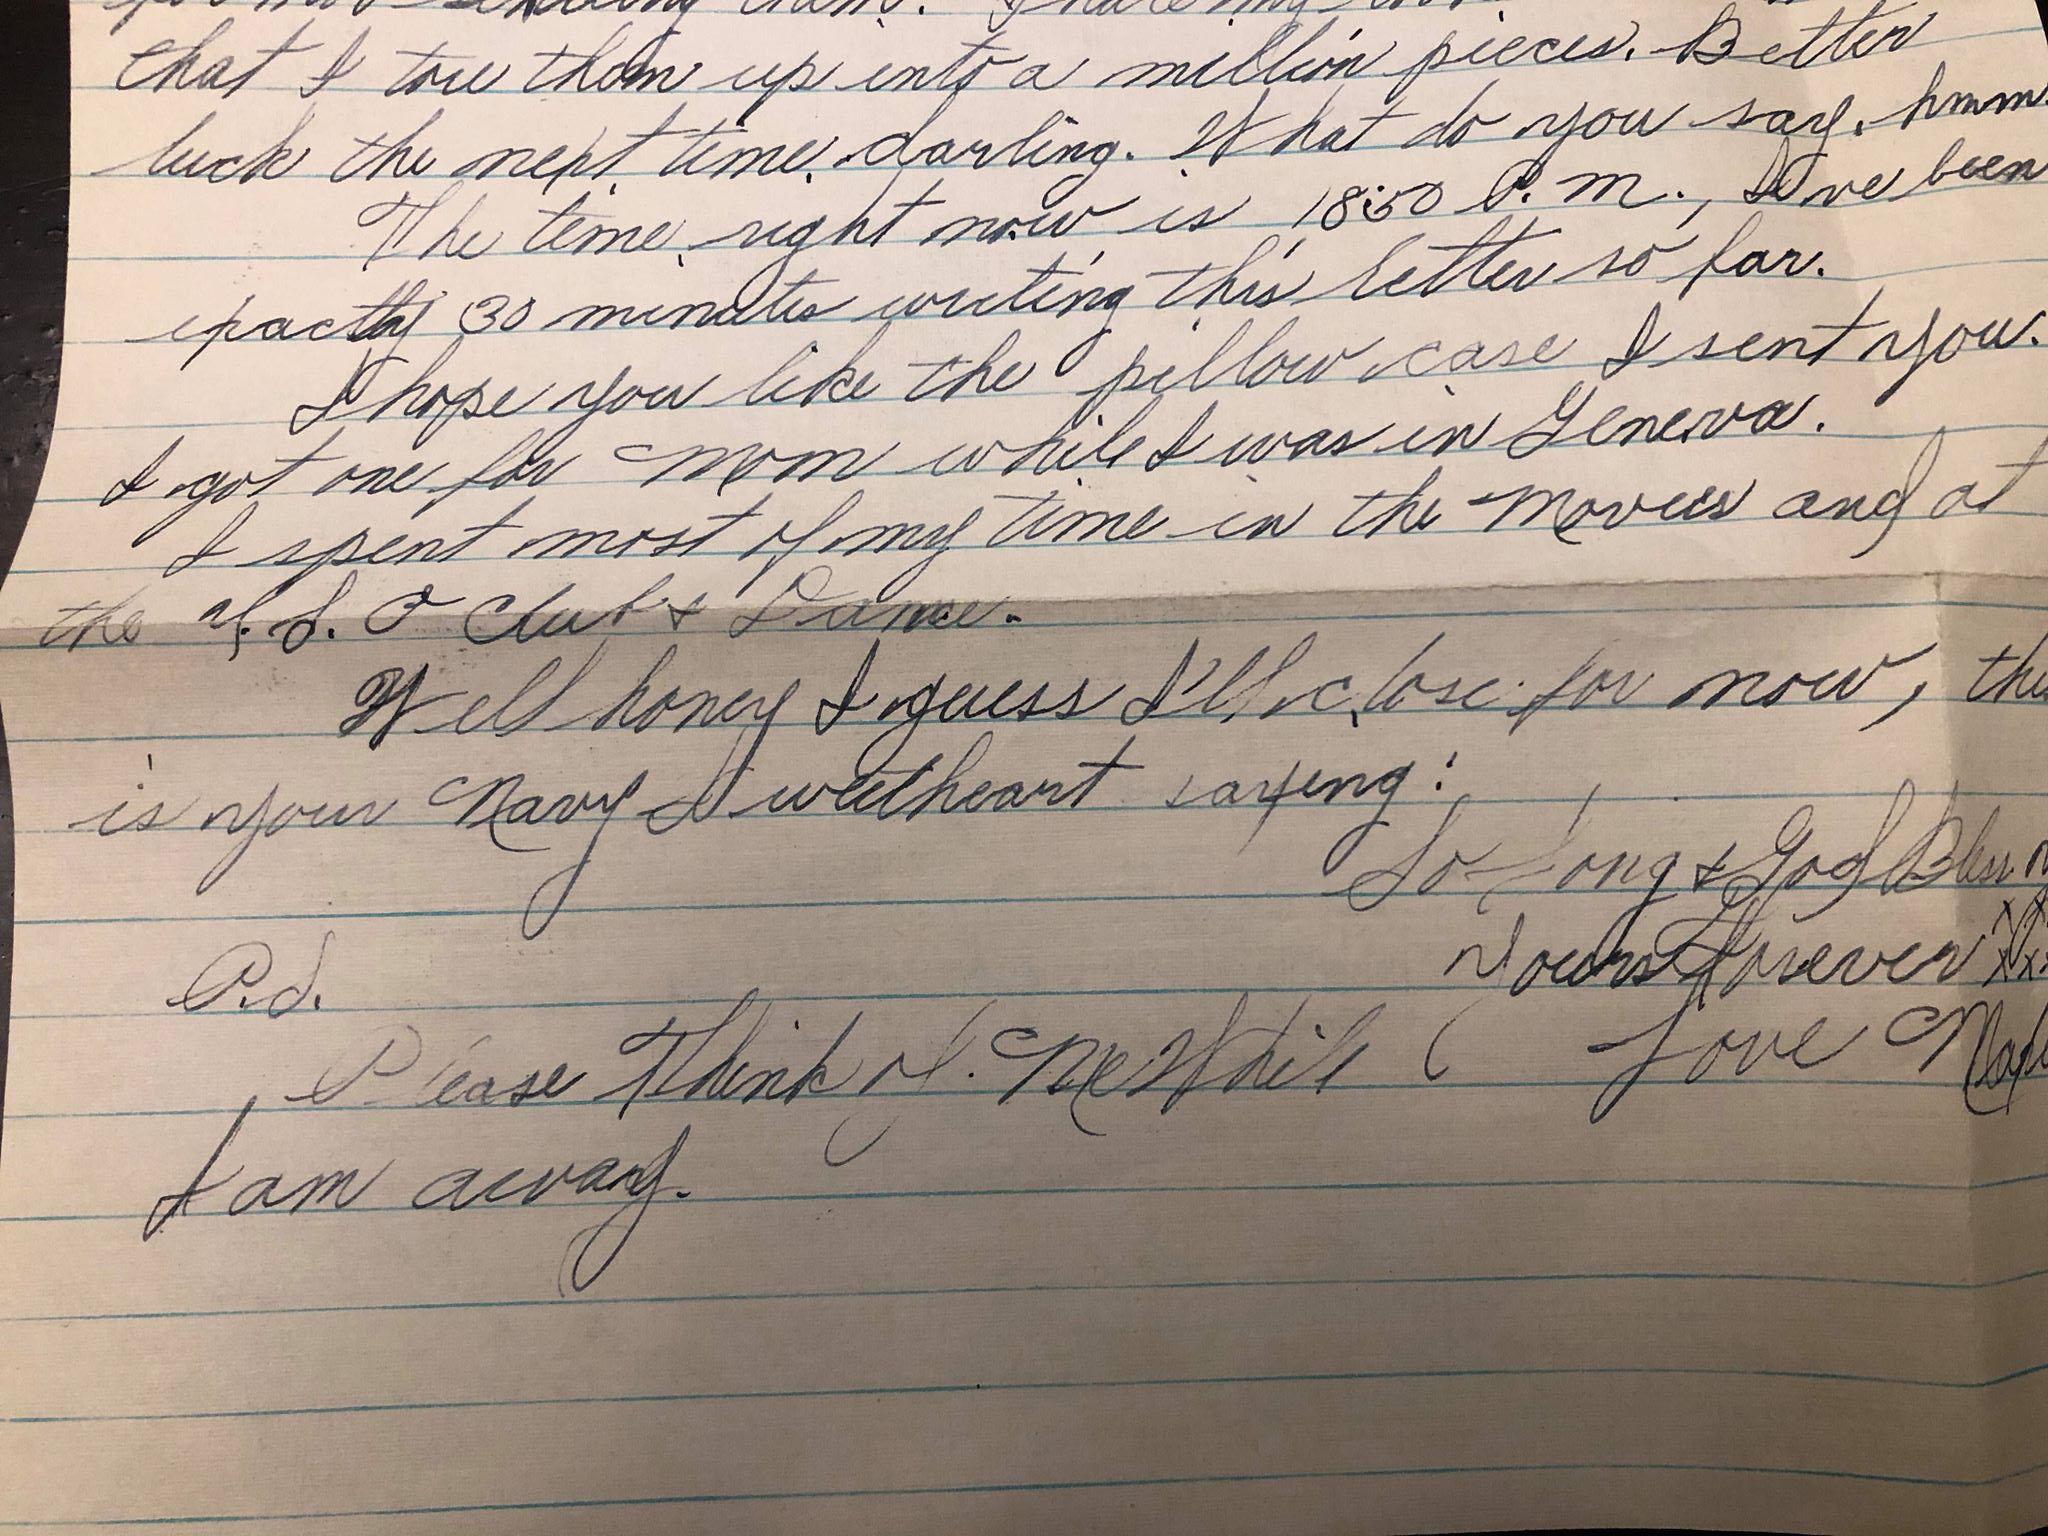 for not sending them. I hate my
that I tore them up into a million pieces. Better
luck the next time, darling. What do you say. hmm.
The time right now is 18:50 P.M., I've been
exactly 30 minutes writing this letter so far.
I hope you like the pillow case I sent you.
I got one for Mom while I was in Geneva.
I spent most of my time in the Movies and at
the U.S.O Club & Dance.
Well honey I guess I'll close for now, this
is your Navy Sweetheart saying:
So Long & God Bless
Yours Forever
P.S.
Love
Please Think of Me While
I am away.